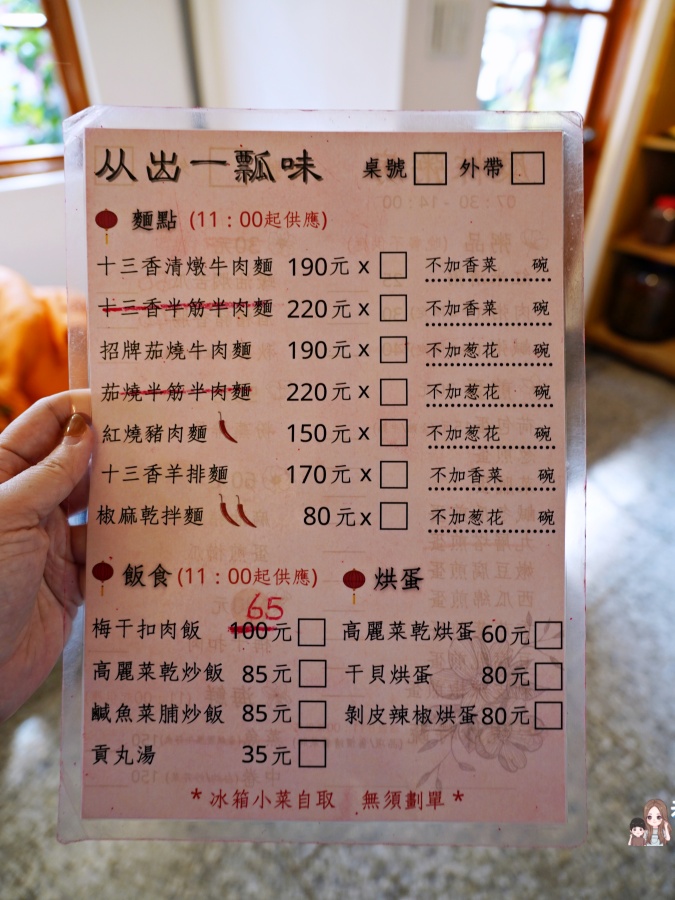 从出一瓢味 桌號 外帶
麵點 (11：00起供應)
十三香清燉牛肉麵 190元 x 不加香菜 碗
十三香半筋半肉麵 220元 x 不加香菜 碗
招牌茄燒牛肉麵 190元 x 不加葱花 碗
茄燒半筋半肉麵 220元 x 不加葱花 碗
紅燒豬肉麵 150元 x 不加葱花 碗
十三香羊排麵 170元 x 不加香菜 碗
椒麻乾拌麵 80元 x 不加葱花 碗
飯食 (11：00起供應) 烘蛋
65
梅干扣肉飯 100元 高麗菜乾烘蛋 60元
高麗菜乾炒飯 85元 干貝烘蛋 80元
鹹魚菜脯炒飯 85元 剝皮辣椒烘蛋 80元
貢丸湯 35元
*冰箱小菜自取 無須劃單*